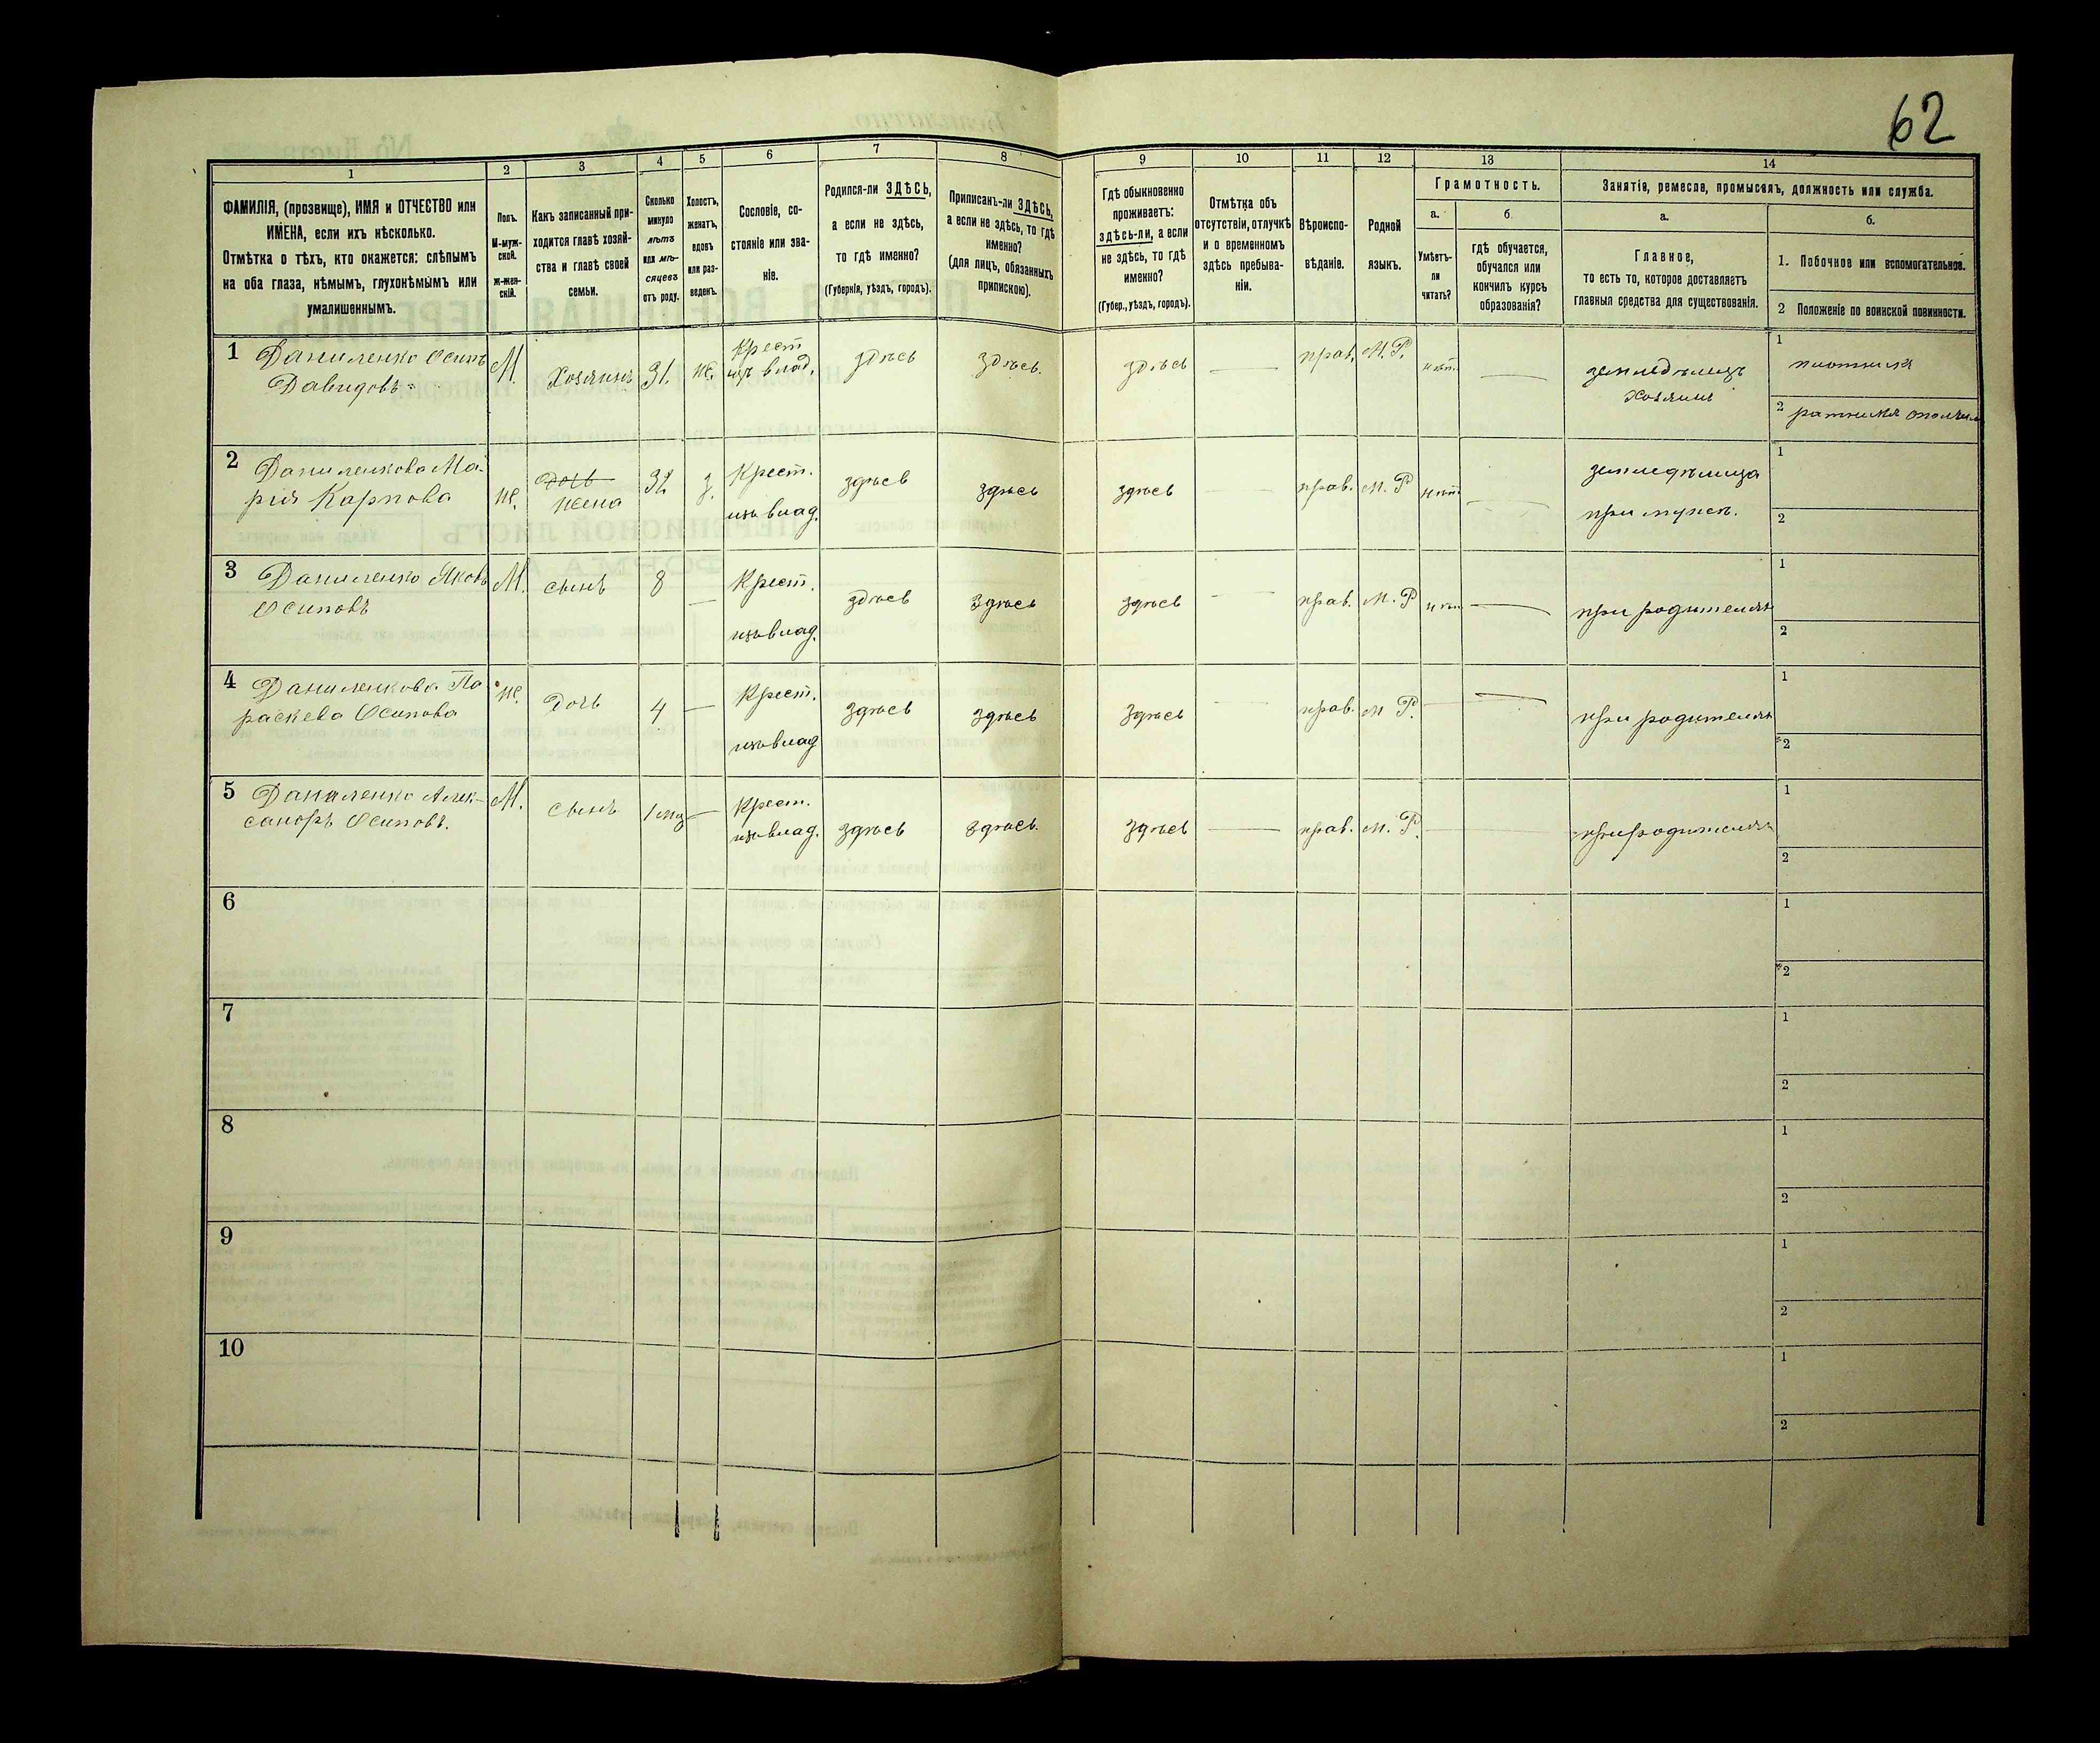 62
1 2 3 4 5 6 7 8 9 10 11 12 13 14
ФАМИЛІЯ, (прозвище), ИМЯ и ОТЧЕСТВО или
ИМЕНА, если ихъ нѣсколько.
Отмѣтка о тѣхъ, кто окажется: слѣпымъ
на оба глаза, нѣмымъ, глухонѣмымъ или
умалишеннымъ.
Полъ.
М-муж-
ской.
ж-жен-
скій.
Какъ записанный при-
ходится главѣ хозяй-
ства и главѣ своей
семьи.
Сколько
минуло
лѣтъ
или мѣ-
сяцевъ
отъ роду.
Холостъ,
женатъ,
вдовъ
или раз-
веденъ.
Сословіе, со-
стояніе или зва-
ніе.
Родился-ли ЗДѢСЬ,
а если не здѣсь,
то гдѣ именно?
(Губернія, уѣздъ, городъ).
Приписанъ-ли ЗДѢСЬ,
а если не здѣсь, то гдѣ
именно?
(для лицъ, обязанныхъ
припискою).
Гдѣ обыкновенно
проживаетъ:
здѣсь-ли, а если
не здѣсь, то гдѣ
именно?
(Губер., уѣздъ, городъ).
Отмѣтка объ
отсутствіи, отлучкѣ
и о временномъ
здѣсь пребыва-
ніи.
Вѣроиспо-
вѣданіе.
Родной
языкъ.
Грамотность.
а.
Умѣетъ-
ли
читать?
б.
гдѣ обучается,
обучался или
кончилъ курсъ
образованія?
Занятіе, ремесло, промыселъ, должность или служба.
а.
Главное,
то есть то, которое доставляетъ
главныя средства для существованія.
б.
1. Побочное или вспомогательное.
2 Положеніе по воинской повинности.
1 Даниленко Осипъ
Давидовъ
М.
Хозяинъ
31.
ж.
Крест
изъ влад.
здѣсь
здѣсь.
здѣсь
—
прав.
М. Р.
нѣт.
—
земледѣлецъ
хозяинъ
1 плотникъ
2 ратникъ ополчен
2 Даниленкова Ма-
рія Карпова
ж.
дочь
жена
32
з.
Крест.
изъ влад.
здѣсь
здѣсь
здѣсь
—
прав.
М. Р
нѣт
—
земледѣлица
при мужѣ.
1
2
3 Даниленко Яковъ
Осиповъ
М.
сынъ
8
—
Крест.
изъ влад.
здѣсь
здѣсь
здѣсь
—
прав.
М. Р
нѣт
—
при родителяхъ
1
2
4 Даниленкова Па
раскева Осипова
ж.
дочь
4
—
Крест.
изъ влад
здѣсь
здѣсь
здѣсь
—
прав.
М Р.
—
—
при родителяхъ
1
2
5 Даниленко Алек-
сандръ Осиповъ.
М.
сынъ
1 мц
—
Крест.
изъ влад.
здѣсь
здѣсь.
здѣсь
—
прав.
М. Р.
при родителяхъ
1
2
6
1
2
7
1
2
8
1
2
9
1
2
10
1
2